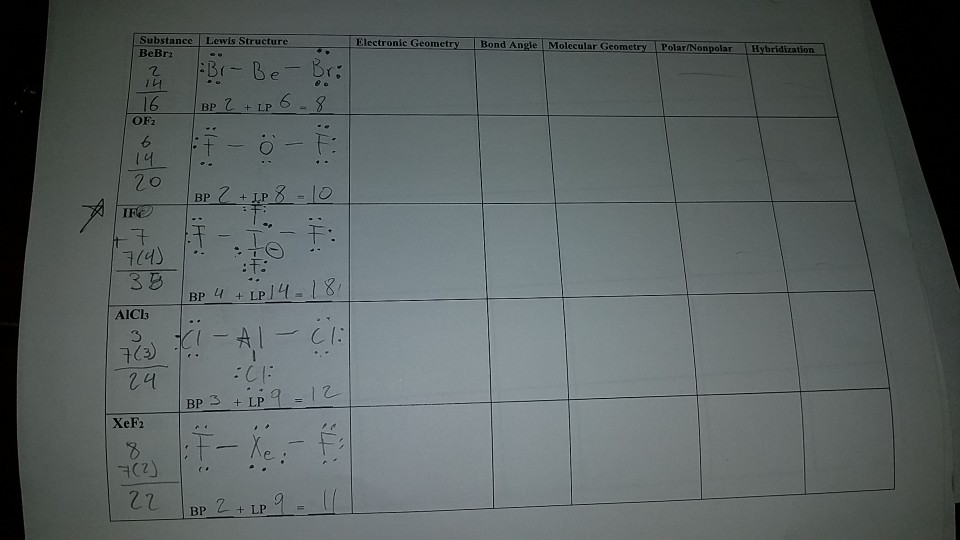 Substance Lewis Structure Electronic Geometry Bond Angle Molecular Geometry Polar/Nonpolar Hybridization
BeBr₂
2
14
16
:Br - Be - Br:
BP 2 + LP 6 = 8
OF₂
6
14
20
:F - O - F:
BP 2 + LP 8 = 10
+ 7
7(4)
:F:
:F - I - F:
:F:
BP 4 + LP 14 = 18
AlCl₃
3
7(3)
24
:Cl - Al - Cl:
:Cl:
BP 3 + LP 9 = 12
XeF₂
8
7(2)
22
:F - Xe: - F:
BP 2 + LP 9 = 11